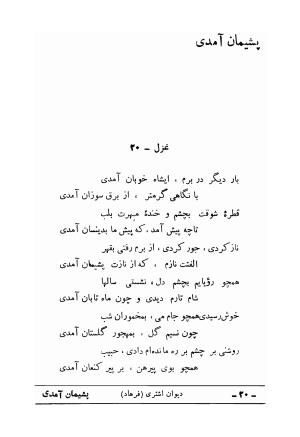 پشیمان آمدی
غزل - ۲۰
بار دیگر در برم ، ایشاه خوبان آمدی
با نگاهی گرمتر ، از برق سوزان آمدی
قطرهٔ شوقت بچشم و خندهٔ مهرت بلب
تاچه پیش آمد ، که پیش ما بدینسان آمدی
نازکردی ، جور کردی ، از برم رفتی بقهر
الفتت نازم ، که از نازت پشیمان آمدی
همچو رؤیایم بچشم دل ، نشستی سالها
شام تارم دیدی و چون ماه تابان آمدی
خوش رسیدی همچو جام می ، بمخموران شب
چون نسیم گل ، بمهجور گلستان آمدی
روشنی بر چشم بر ره مانده‌ام دادی ، حبیب
همچو بوی پیرهن ، بر پیر کنعان آمدی
پشیمان آمدی دیوان اشتری (فرهاد) - ۲۰ -